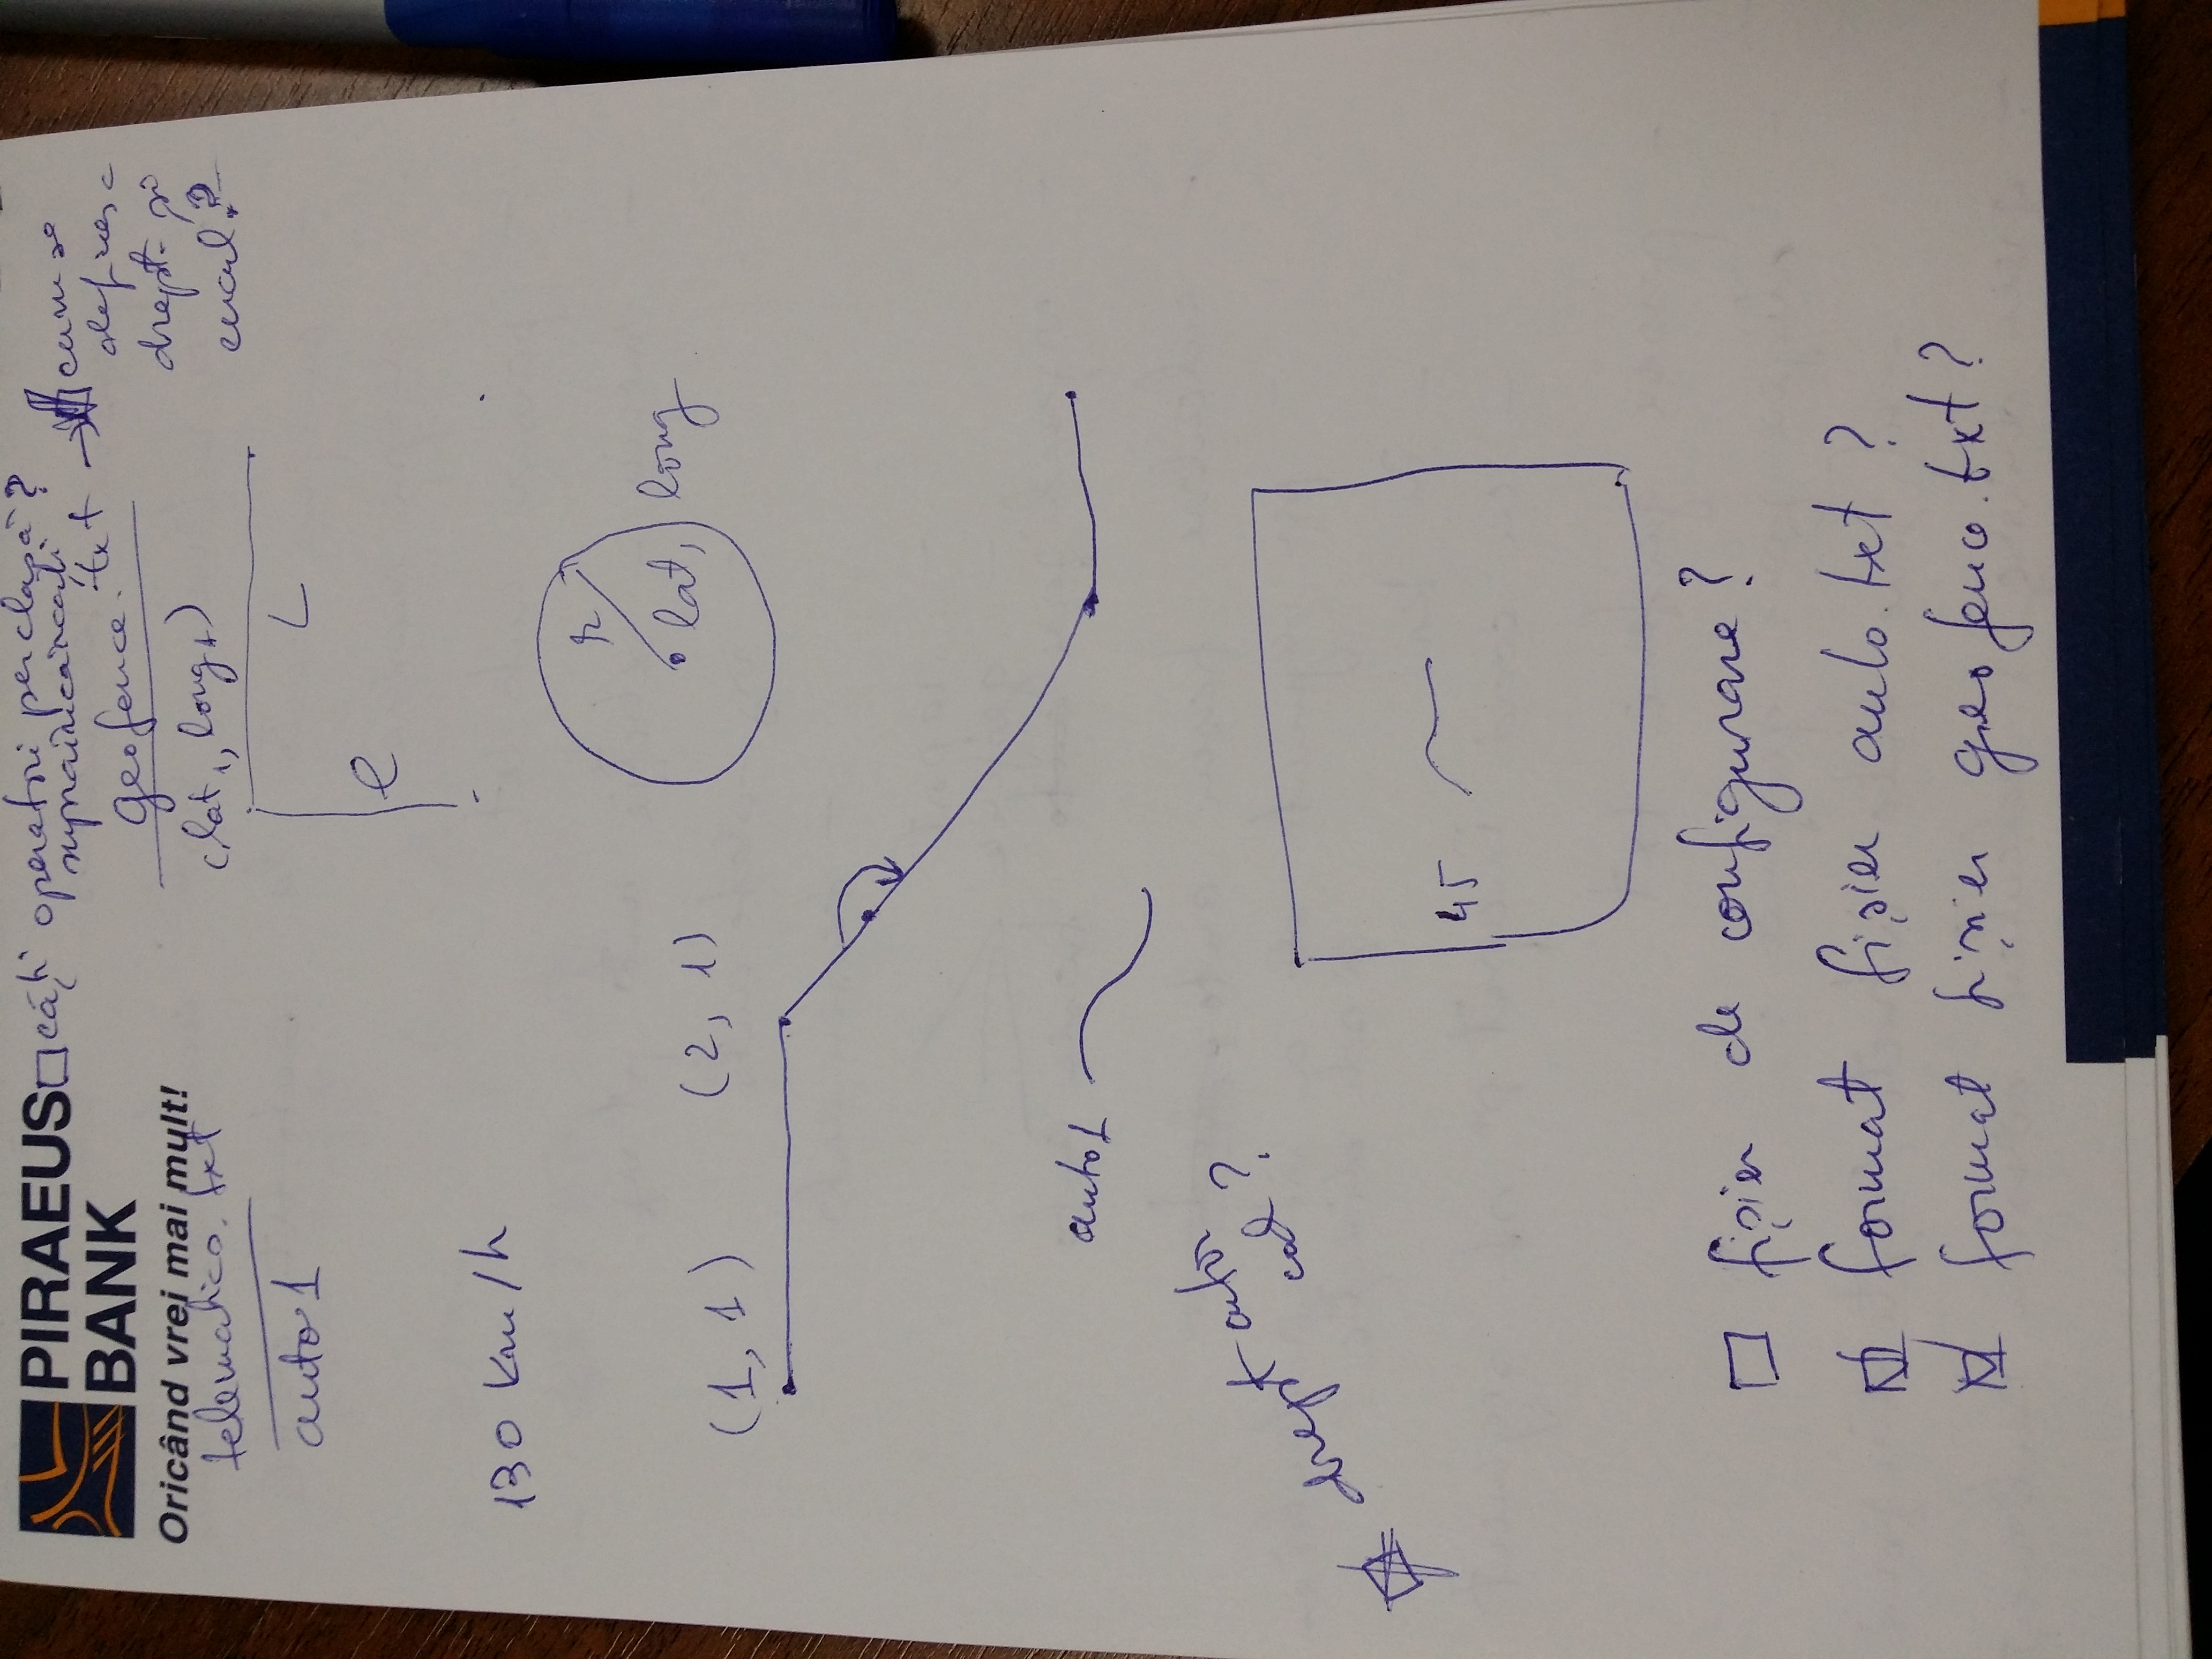 PIRAEUS
BANK
Oricând vrei mai mult!
□ câți operatori per clasă?
supraîncărcați
geofence.txt → cum se
definesc
drept. și
cerc?
(lat1, long1)
telematics.txt
auto1
L
l
130 Km/h
r
lat, long
(1, 1) (2, 1)
auto1
drept autor
cod?
45
fișier de configurare?
format fișier auto.txt?
format fișier geofence.txt?